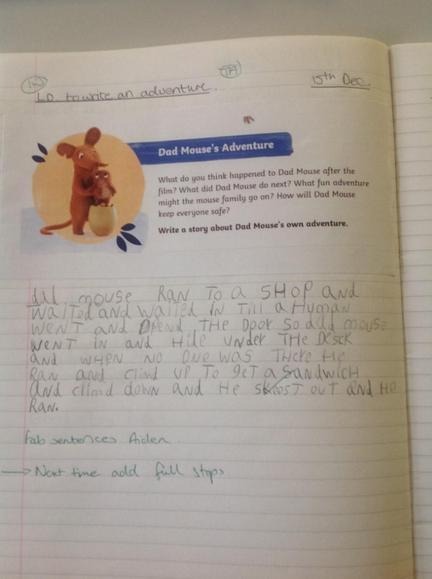 15th Dec.
L.O. to write an adventure.
Dad Mouse's Adventure
What do you think happened to Dad Mouse after the
film? What did Dad Mouse do next? What fun adventure
might the mouse family go on? How will Dad Mouse
keep everyone safe?
Write a story about Dad Mouse's own adventure.
dad mouse RAN TO a SHOP and
waited and waited IN Till a Human
WENT and Opend THe Door So dad mouse
WENT IN and Hide UNder THe Desck
and WHeN NO ONe was THere He
RaN and climd UP To geT a Sandwich
and climd down and He SHOST OUT and He
RaN.
Fab sentences Aiden
→ Next time add full stops